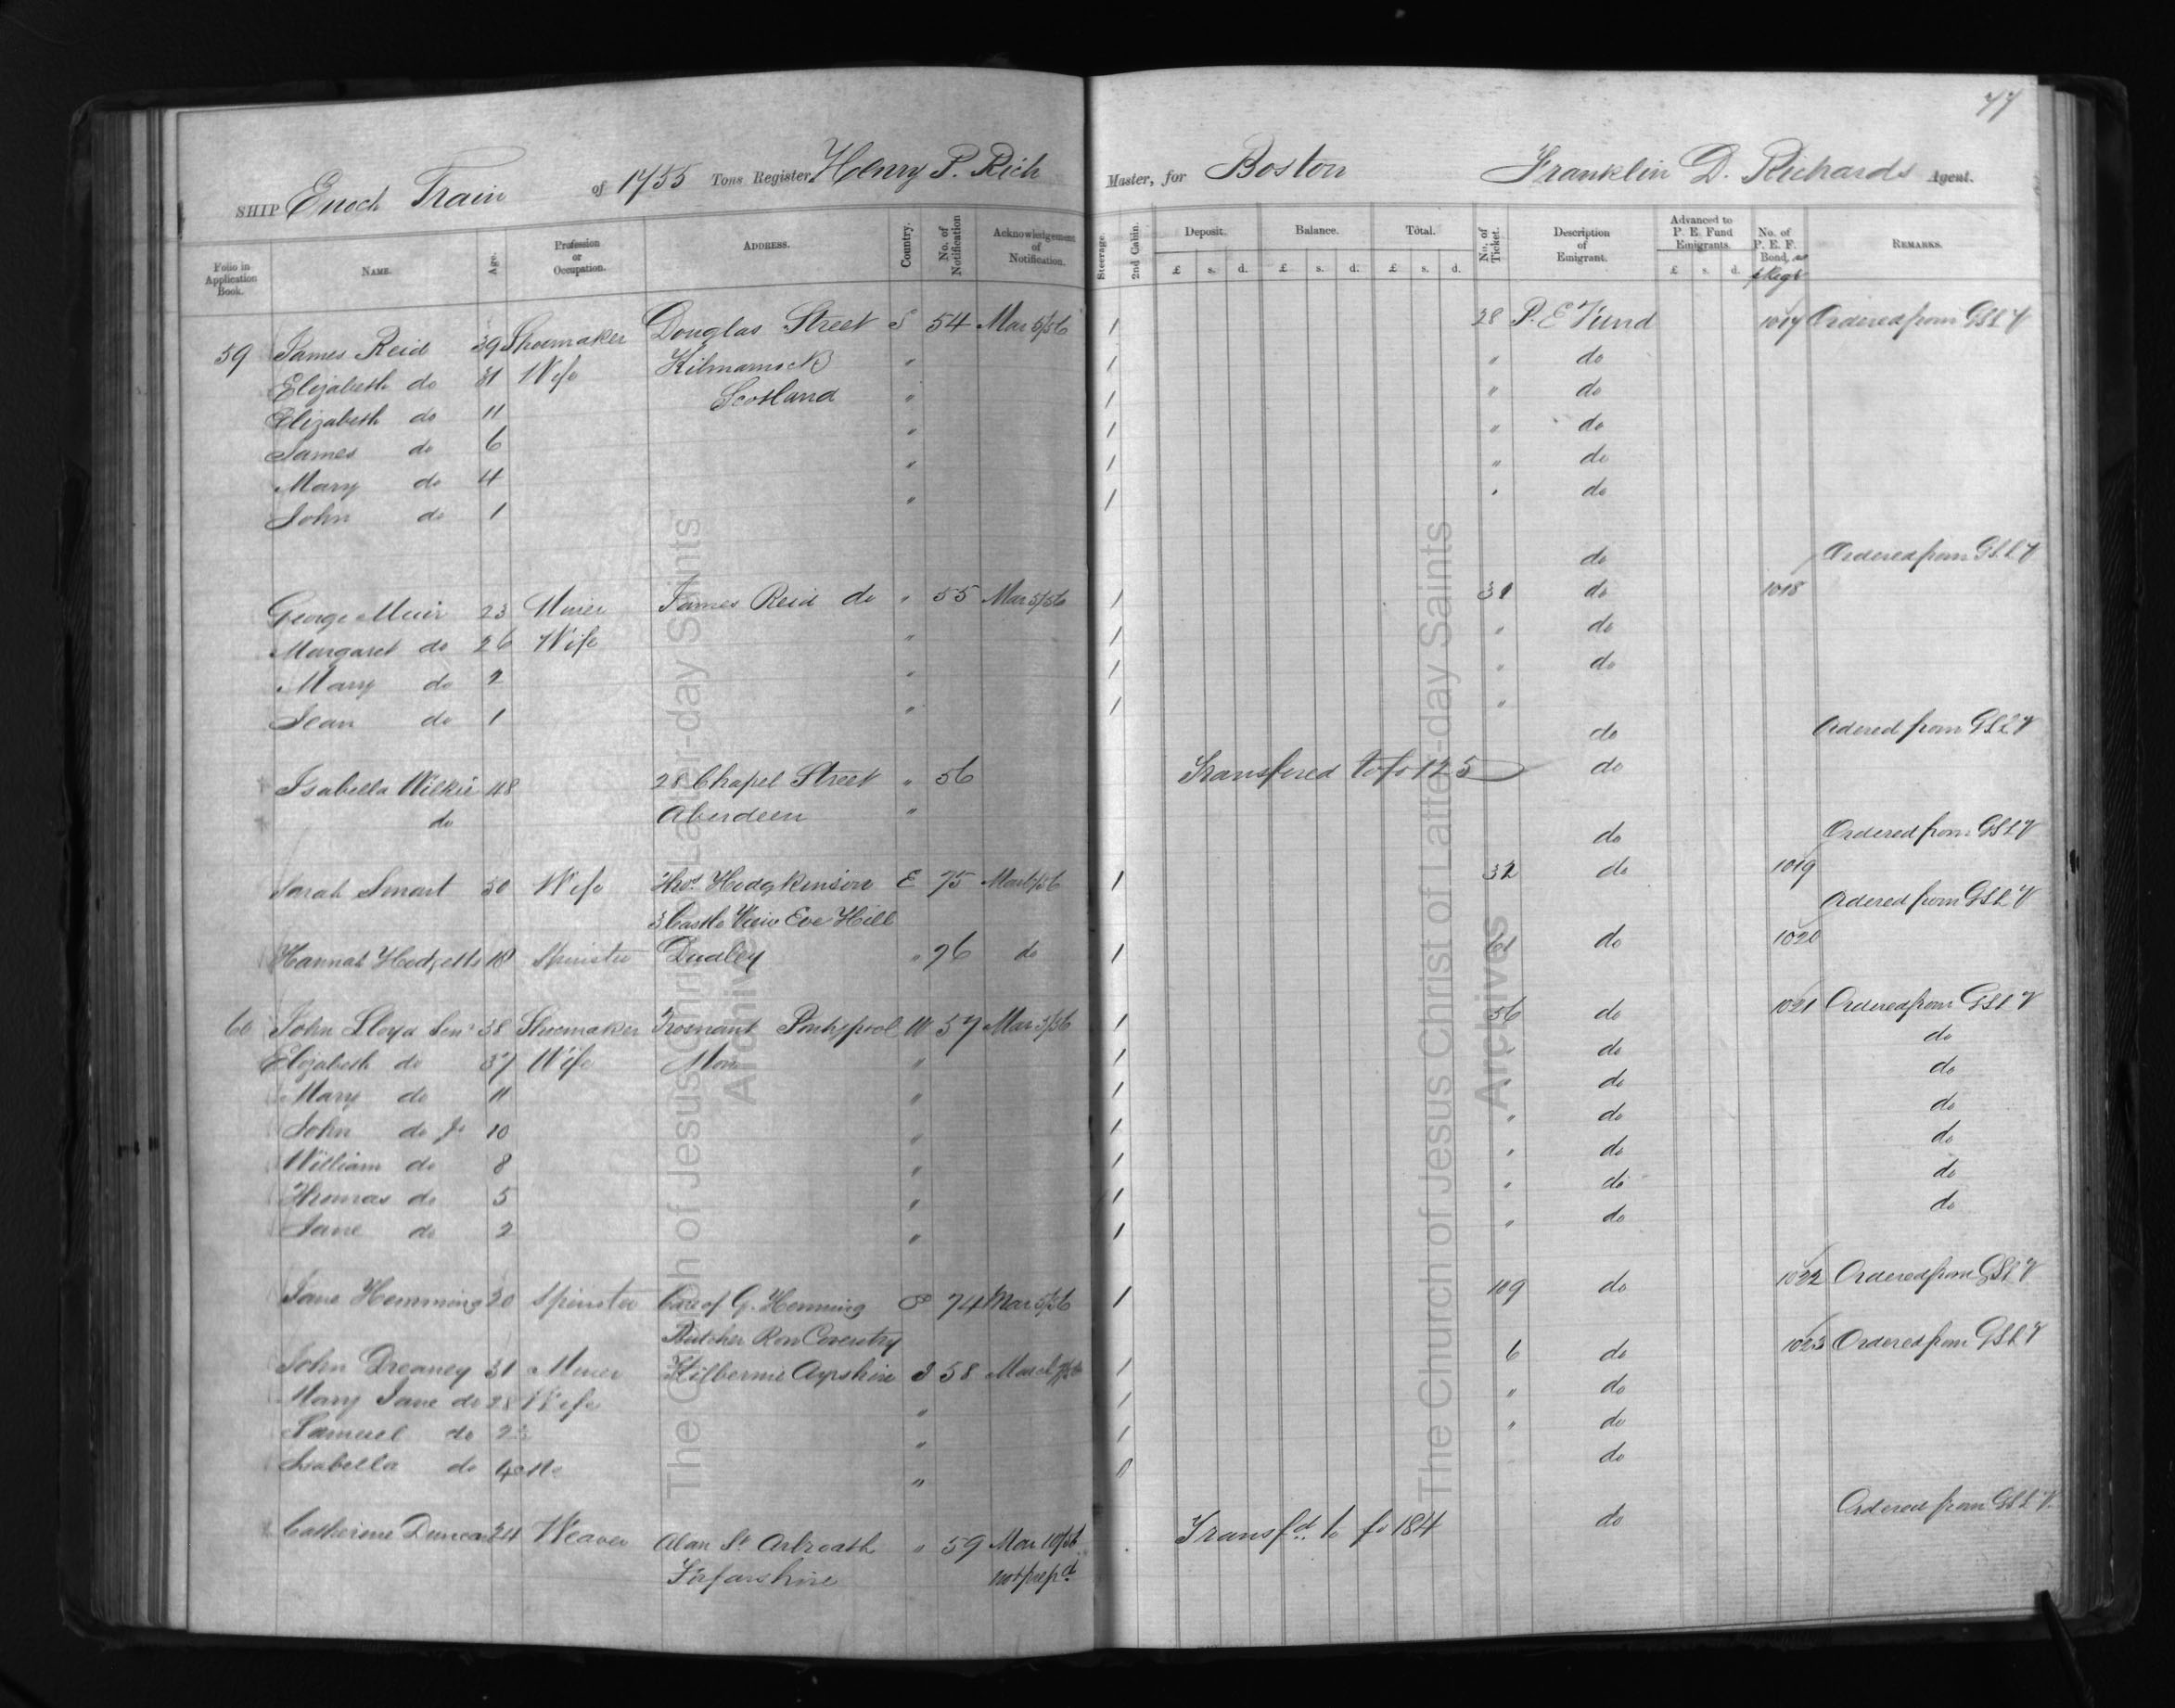 77
SHIP Enoch Train of 1755 Tons Register, Henry P. Rich Master, for Boston Franklin D. Richards Agent.
Folio in Application Book. NAME. Age. Profession or Occupation. ADDRESS. Country. No. of Notification Acknowledgement of Notification. Steerage. 2nd Cabin. Deposit. £ s. d. Balance. £ s. d. Total. £ s. d. No. of Ticket. Description of Emigrant. Advanced to P. E. Fund Emigrants. £ s. d. No. of P. E. F. Bond, REMARKS.
59 James Reid 39 Shoemaker Douglas Street S 54 Mar 5/56 1 28 P. E Fund 1017 Ordered from GSLV
Elizabeth do 31 Wife Kilmarnock " 1 " do
Elizabeth do 11 Scotland " 1 " do
James do 6 " 1 " do
Mary do 4 " 1 " do
John do 1 " 1 " do
do Ordered from GSLV
George Muir 23 Miner James Reid do " 55 Mar 5/56 1 31 do 1018
Margaret do 26 Wife " 1 " do
Mary do 2 " 1 " do
Jean do 1 " 1 "
do Ordered from GSLV
Isabella Wilkie 48 28 Chapel Street " 56 Transfered to fo 125 do
do Aberdeen "
do Ordered from GSLV
Sarah Smart 50 Wife Thos. Hodgkinson E 75 Mar 6/56 1 32 do 1019
3 Castle View Eve Hill Ordered from GSLV
Hannah Hodgetts 18 Spinster Dudley " 76 do 1 61 do 1020
60 John Lloyd Senr 38 Shoemaker Trosnant Pontypool W 57 Mar 5/56 1 56 do 1021 Ordered from GSLV
Elizabeth do 37 Wife Mon " 1 " do do
Mary do 11 " 1 " do do
John do Jr 10 " 1 " do do
William do 8 " 1 " do do
Thomas do 5 " 1 " do do
Jane do 2 " 1 " do do
Jane Hemming 20 Spinster Care of G. Hemming 74 Mar 5/56 1 109 do 1022 Ordered from GSLV
Butcher Row Coventry
John Dreaney 31 Miner Kilbernie Ayrshire S 58 1 6 do 1023 Ordered from GSLV
Mary Jane do 28 Wife " 1 " do
Samuel do 2 " 1 " do
Isabella do " 0 do
Catherine Duncan 24 Weaver Alan St Arbroath " 59 Mar 10/56 Transfd to fo 184 do Ordered from GSLV
Forfarshire not prepd
The Church of Jesus Christ of Latter-day Saints
Archives
The Church of Jesus Christ of Latter-day Saints
Archives